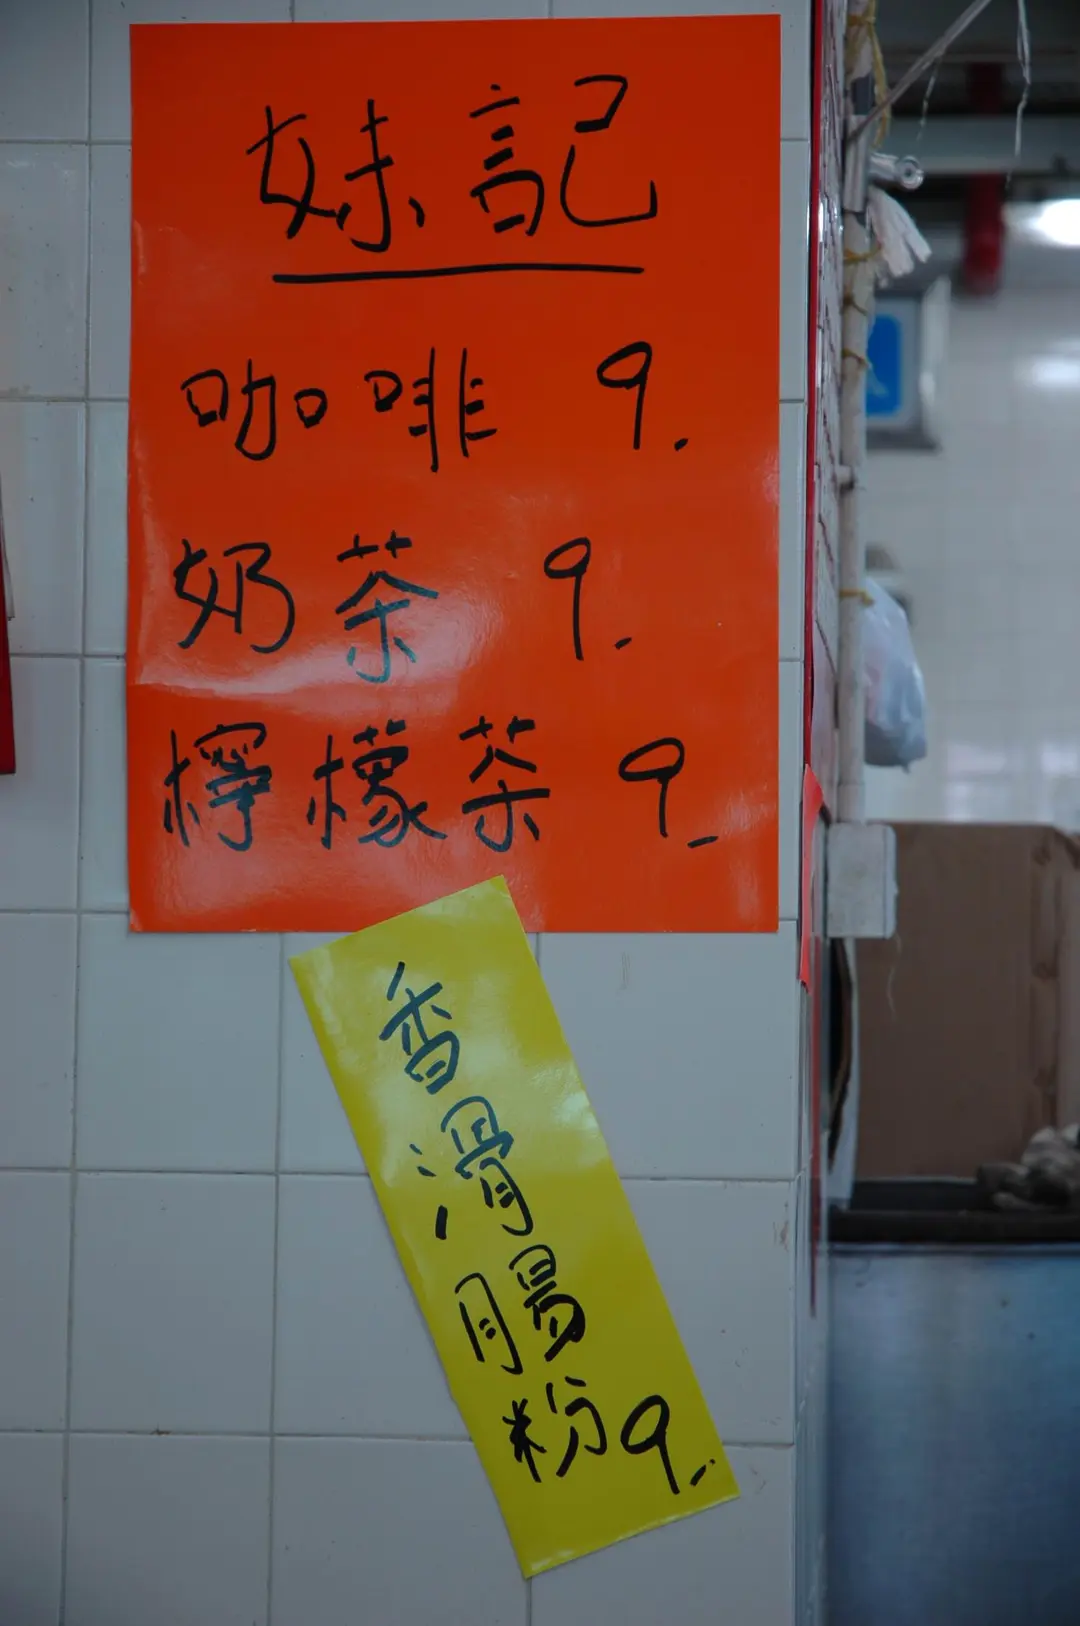 妹記
咖啡 9.
奶茶 9.
檸檬茶 9.
香滑腸粉 9.